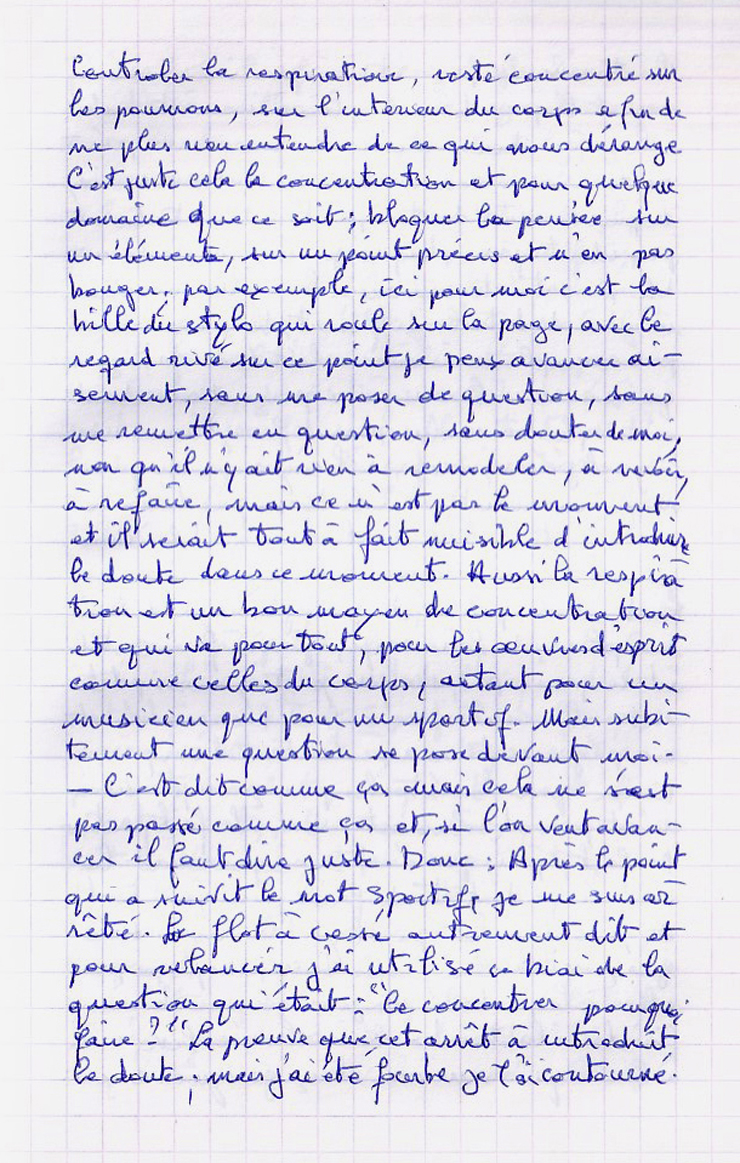 Controler la respiration, resté concentré sur
les poumons, sur l'interieur du corps afin de
ne plus rien entendre de ce qui nous dérange
C'est juste cela la concentration et pour quelque
domaine que ce soit ; bloquer la pensée sur
un éléments, sur un point précis et n'en pas
bouger ; par exemple, ici pour moi c'est la
bille du stylo qui roule sur la page, avec le
regard rivé sur ce point je peux avancer ai-
sement, sans me poser de question, sans
me remettre en question, sans douter de moi,
non qu'il n'y ait rien à remodeler, à revoir,
à refaire, mais ce n'est pas le moment
et il serait tout à fait nuisible d'introduire
le doute dans ce moment. Aussi la respira
tion est un bon moyen de concentration
et qui va pour tout, pour les œuvres d'esprit
comme celles du corps, autant pour un
musicien que pour un sportif. Mais subi-
tement une question se pose devant moi.
— C'est dit comme ça mais cela ne s'est
pas passé comme ça et, si l'on veut avan-
cer il faut dire juste. Donc : Après le point
qui a suivit le mot sportif, je me suis ar
rêté. Le flot à cessé autrement dit et
pour relancer j'ai utilisé ce biai de la
question qui était : "Se concentrer pourquoi
faire ?" La preuve que cet arrêt à introduit
le doute ; mais j'ai été fourbe je l'ai contourné.